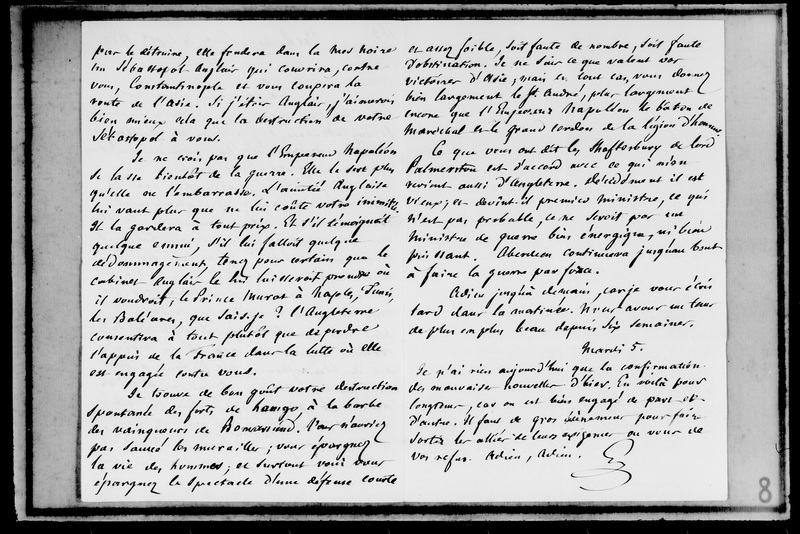 pour le détruire, elle fondera dans la mer noire
un Sébastopol Anglais qui couvrira, contre
vous, Constantinople et vous coupera la
route de l'Asie. Si j'étais Anglais, j'aimerois
bien mieux cela que la destruction de votre
Sébastopol à vous.
Je ne crois pas que l'Empereur Napoléon
se lasse bientôt de la guerre. Elle le sert plus
qu'elle ne l'embarrasse. L'amitié Anglaise
lui vaut plus que ne lui coûte votre inimitié.
Il la gardera à tout prix. Et s'il témoignait
quelque ennui, s'il lui falloit quelque
dédommagement, tenez pour certain que le
cabinet Anglais le lui laisseroit prendre où
il voudroit, le Prince Murat à Naples, Tunis,
les Baléares, que sais-je ? l'Angleterre
consentira à tout plutôt que de perdre
l'appui de la France dans la lutte où elle
est engagée contre vous.
Je trouve de bon goût votre destruction
spontanée des forts de hango, à la barbe
des vainqueurs de Bomarsund. Vous n'auriez
pas sauvé les murailles ; vous épargnez
la vie des hommes ; et surtout vous vous
épargnez le spectacle d'une défense courte
et assez foible, soit faute de nombre, soit faute
d'obstination. Je ne sais ce que valent vos
victoires d'Asie ; mais en tout cas, vous donnez
bien largement le St. André, plus largement
encore que l'Empereur Napoléon le bâton de
Maréchal et le grand cordon de la légion d'honneur.
Ce que vous ont dit les Shaftesbury de lord
Palmerston est d'accord avec ce qui m'en
revient aussi d'Angleterre. Décidément il est
vieux ; et devint-il premier ministre, ce qui
n'est pas probable, ce ne seroit pas un
ministre de guerre bien énergique, ni bien
puissant. Aberdeen continuera jusqu'au bout
à faire la guerre par force.
Adieu jusqu'à demain, car je vous écris
tard dans la matinée. Nous avons un tems
de plus en plus beau depuis six semaines.
Mardi 5.
Je n'ai rien aujourd'hui que la confirmation
des mauvaises nouvelles d'hier. En voilà pour
longtems, car on est bien engagé de part et
d'autre. Il faut de gros événemens pour faire
sortir les alliés de leurs exigences ou vous de
vos refus. Adieu, Adieu.
G
8